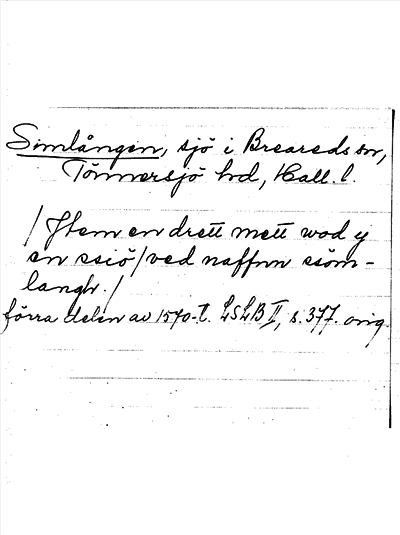 Simlången, sjö i Breareds sn,
Tönnersjö hd, Hall. l.
/ Jtem en drett mett wod y
en ssiö / ved naffnn ssöm-
langh. /
förra delen av 1570-t. LSLB II, s. 377. orig.